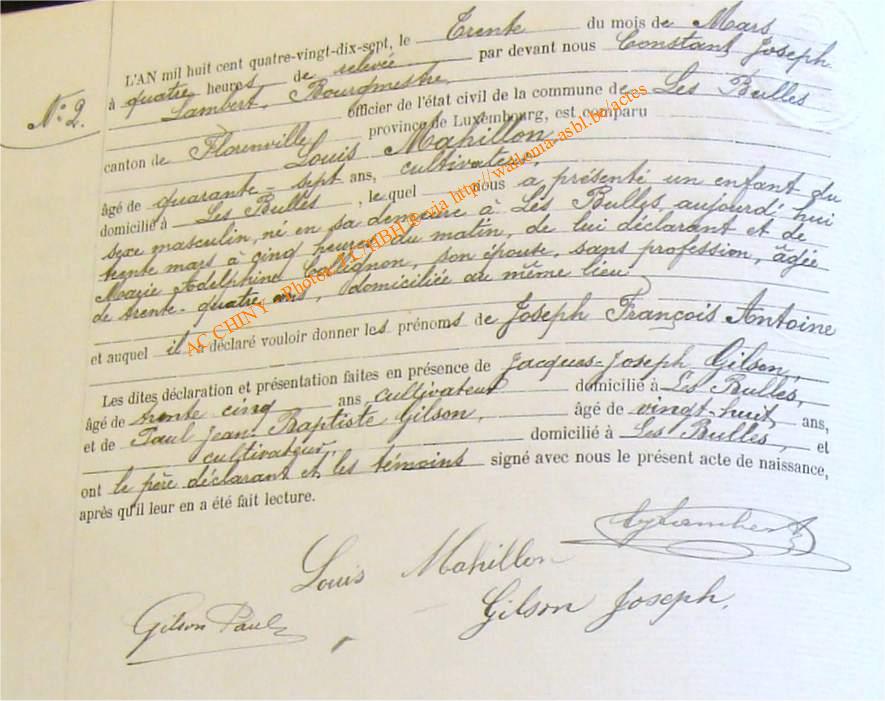 L'AN mil huit cent quatre-vingt-dix-sept, le Trente du mois de Mars
à quatre heures de relevée par devant nous Constant Joseph
Lambert, Bourgmestre
officier de l'état civil de la commune de Les Bulles
N° 2.
canton de Florenville province de Luxembourg, est comparu
Louis Mahillon
âgé de quarante-sept ans, cultivateur
domicilié à Les Bulles, le quel nous a présenté un enfant du
sexe masculin, né en sa demeure à Les Bulles, aujourd'hui
trente mars à cinq heures du matin, de lui déclarant et de
Marie Adelphine Collignon, son épouse, sans profession, âgée
de trente-quatre ans, domiciliée au même lieu
et auquel il a déclaré vouloir donner les prénoms de Joseph François Antoine
Les dites déclaration et présentation faites en présence de Jacques-Joseph Gilson,
âgé de trente cinq ans, cultivateur domicilié à Les Bulles,
et de Paul Jean Baptiste Gilson, âgé de vingt-huit ans,
cultivateur, domicilié à Les Bulles, et
ont le père déclarant et les témoins signé avec nous le présent acte de naissance,
après qu'il leur en a été fait lecture.
Louis Mahillon
Gilson Paul
Gilson Joseph.
AC CHINY - Photos via http://wallonia-asbl.be/actes